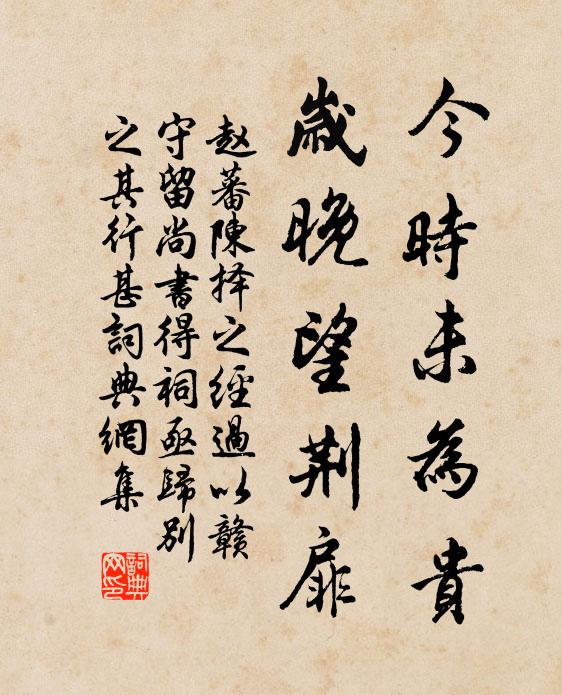 今時未為貴
歲晚望荆扉
赵蕃陳择之經過以赣
守留尚書得祠亟歸别
之其行甚詞典網集
詞典网印